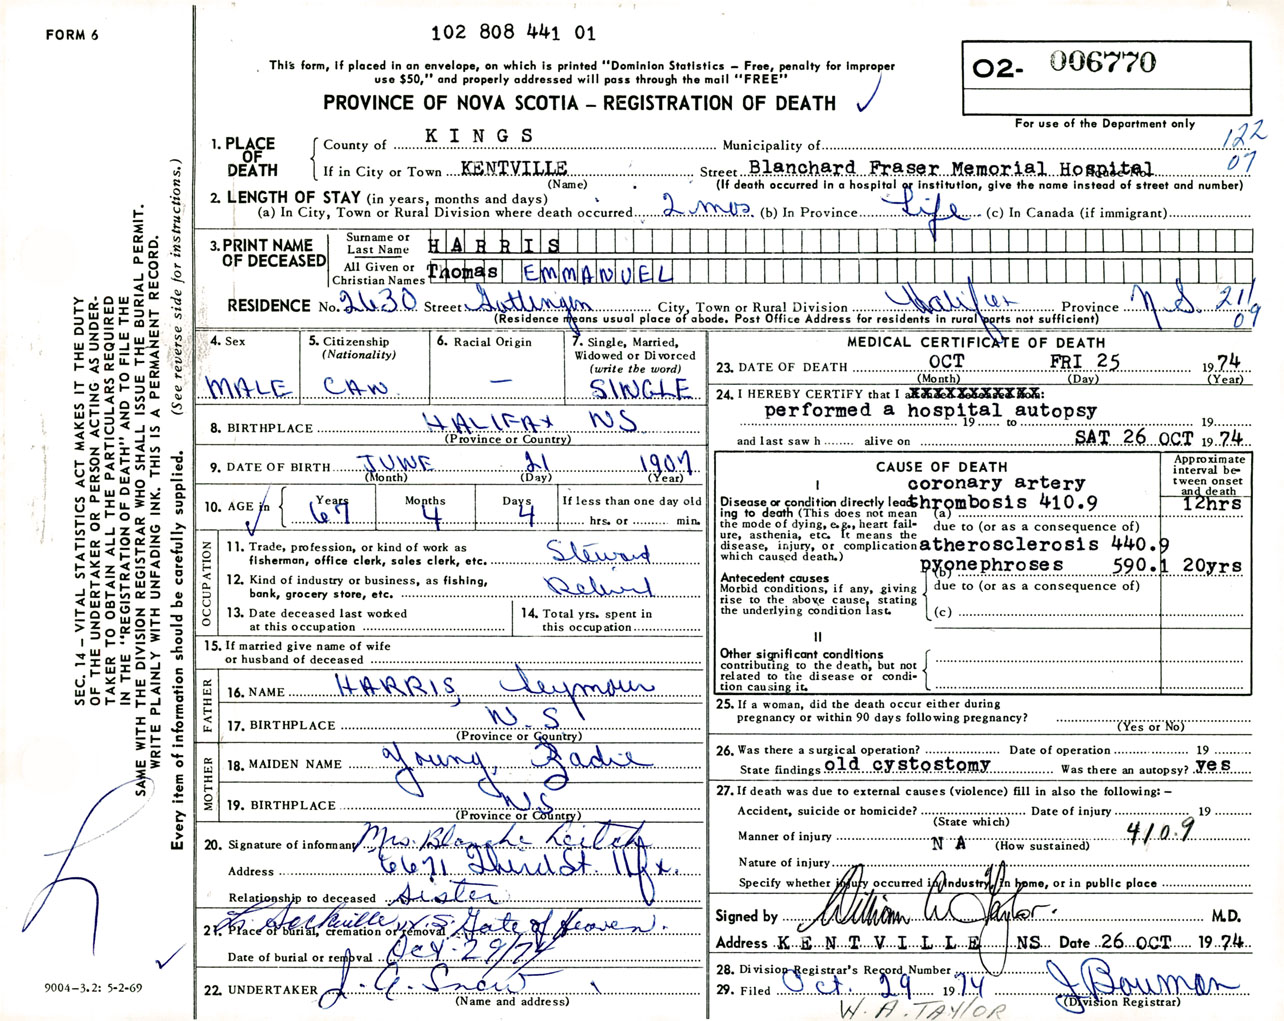 FORM 6
102 808 441 01
This form, if placed in an envelope, on which is printed "Dominion Statistics – Free, penalty for improper
use $50," and properly addressed will pass through the mail "FREE"
PROVINCE OF NOVA SCOTIA – REGISTRATION OF DEATH
02- 006770
For use of the Department only
122
07
1. PLACE OF DEATH
County of KINGS Municipality of
If in City or Town KENTVILLE Street Blanchard Fraser Memorial Hospital
(Name) (If death occurred in a hospital or institution, give the name instead of street and number)
2. LENGTH OF STAY (in years, months and days)
(a) In City, Town or Rural Division where death occurred 2 mos (b) In Province Life (c) In Canada (if immigrant)
3. PRINT NAME OF DECEASED
Surname or Last Name HARRIS
All Given or Christian Names Thomas EMMANUEL
RESIDENCE No. 2630 Street Gottingen City, Town or Rural Division Halifax Province N.S. 211/09
(Residence means usual place of abode. Post Office Address for residents in rural parts not sufficient)
4. Sex
MALE
5. Citizenship
(Nationality)
CAN
6. Racial Origin
—
7. Single, Married,
Widowed or Divorced
(write the word)
SINGLE
8. BIRTHPLACE HALIFAX NS
(Province or Country)
9. DATE OF BIRTH JUNE 21 1907
(Month) (Day) (Year)
10. AGE in
Years 67 Months 4 Days 4
If less than one day old
hrs. or min.
OCCUPATION
11. Trade, profession, or kind of work as
fisherman, office clerk, sales clerk, etc. Steward
12. Kind of industry or business, as fishing,
bank, grocery store, etc. Retired
13. Date deceased last worked
at this occupation
14. Total yrs. spent in
this occupation
15. If married give name of wife
or husband of deceased
FATHER
16. NAME HARRIS, Seymour
17. BIRTHPLACE N.S
(Province or Country)
MOTHER
18. MAIDEN NAME Young, Zadie
19. BIRTHPLACE NS
(Province or Country)
20. Signature of informant Mrs. Blanche Leitch
Address 6671 Third St. Hfx.
Relationship to deceased Sister
21. Place of burial, cremation or removal Lr Sackville N.S. Gate of Heaven.
Date of burial or removal Oct 29/74
22. UNDERTAKER J. A. Snow
(Name and address)
MEDICAL CERTIFICATE OF DEATH
23. DATE OF DEATH OCT FRI 25 1974
(Month) (Day) (Year)
24. I HEREBY CERTIFY that I
performed a hospital autopsy
19 to 19
and last saw h alive on SAT 26 OCT 1974
CAUSE OF DEATH
Approximate
interval be-
tween onset
and death
I
coronary artery
Disease or condition directly lead- thrombosis 410.9 12hrs
ing to death (This does not mean (a)
the mode of dying, e.g., heart fail- due to (or as a consequence of)
ure, asthenia, etc. It means the
disease, injury, or complication atherosclerosis 440.9
which caused death.)
pyonephroses 590.1 20yrs
(b)
Antecedent causes
Morbid conditions, if any, giving due to (or as a consequence of)
rise to the above cause, stating
the underlying condition last. (c)
II
Other significant conditions
contributing to the death, but not
related to the disease or condi-
tion causing it.
25. If a woman, did the death occur either during
pregnancy or within 90 days following pregnancy?
(Yes or No)
26. Was there a surgical operation? Date of operation 19
State findings old cystostomy Was there an autopsy? yes
27. If death was due to external causes (violence) fill in also the following: –
Accident, suicide or homicide? Date of injury 19
(State which)
Manner of injury N A 410.9
(How sustained)
Nature of injury
Specify whether injury occurred in Industry, in home, or in public place
Signed by William A Taylor. M.D.
Address KENTVILLE NS Date 26 OCT 1974
28. Division Registrar's Record Number
29. Filed Oct. 29 1974 J Bowman
(Division Registrar)
W. A. TAYLOR
SEC. 14 – VITAL STATISTICS ACT MAKES IT THE DUTY
OF THE UNDERTAKER OR PERSON ACTING AS UNDER-
TAKER TO OBTAIN ALL THE PARTICULARS REQUIRED
IN THE "REGISTRATION OF DEATH" AND TO FILE THE
SAME WITH THE DIVISION REGISTRAR WHO SHALL ISSUE THE BURIAL PERMIT.
WRITE PLAINLY WITH UNFADING INK. THIS IS A PERMANENT RECORD.
Every item of information should be carefully supplied. (See reverse side for instructions.)
9004-3.2: 5-2-69